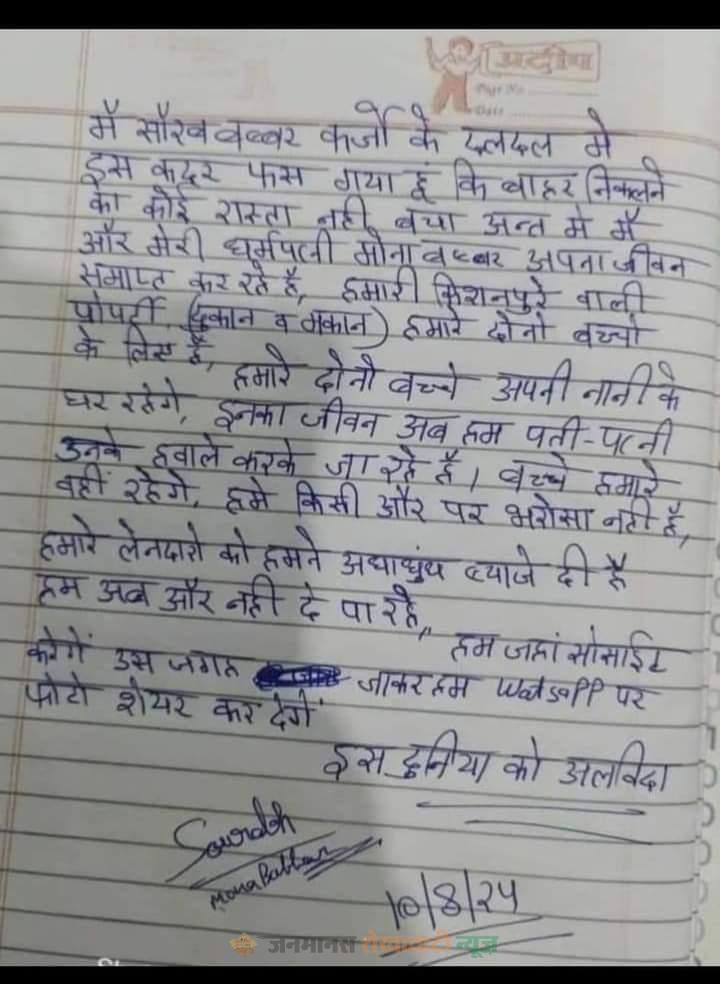 अदवितिय
Page No.
Date
मैं सौरव बब्बर कर्जो के दलदल मे
इस कदर फस गया हूं कि बाहर निकलने
का कोई रास्ता नही बचा अन्त मे मैं
और मेरी धर्मपत्नी मोना बब्बर अपना जीवन
समाप्त कर रहे है, हमारी किशनपुरे वाली
प्रोपर्टी, (दुकान व मकान) हमारे दोनो बच्चो
के लिए है, हमारे दोनो बच्चे अपनी नानी के
घर रहेगे, इनका जीवन अब हम पती-पत्नी
उनके हवाले करके जा रहे है। बच्चे हमारे
वहीं रहेगे, हमे किसी और पर भरोसा नही है,
हमारे लेनदारो को हमने अंधाधुंध ब्याजे दी है
हम अब और नही दे पा रहे,, हम जहां सोसाईट
करेगें उस जगह जाकर हम Watsapp पर
फोटो शेयर कर देगें
इस दुनिया को अलविदा
Sourabh
Mona Babbar
10/8/24
जनमानस शेखावाटी न्यूज़